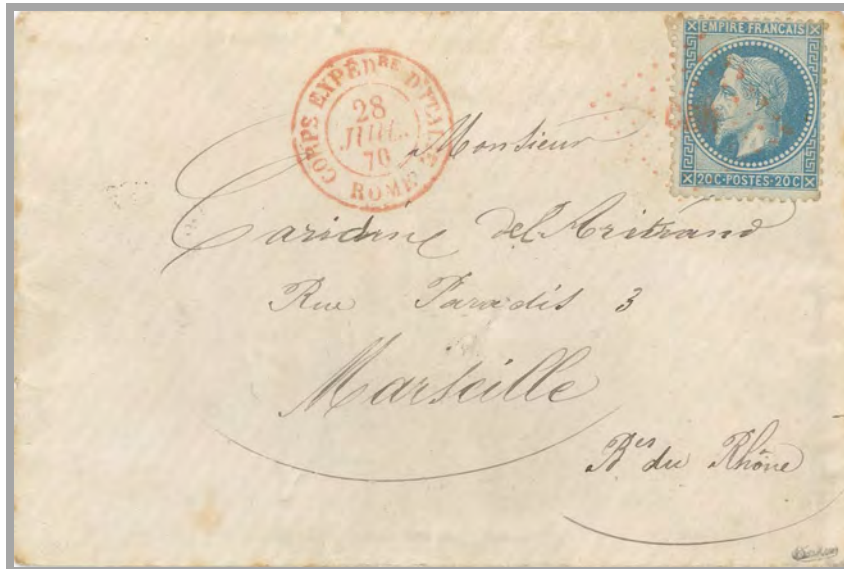 EMPIRE FRANÇAIS
20C·POSTES·20C
CORPS EXPÉDRE D'ITALIE
28
JUIL.
70
ROME
Monsieur
Rue Paradis 3
Marseille
Bes du Rhône